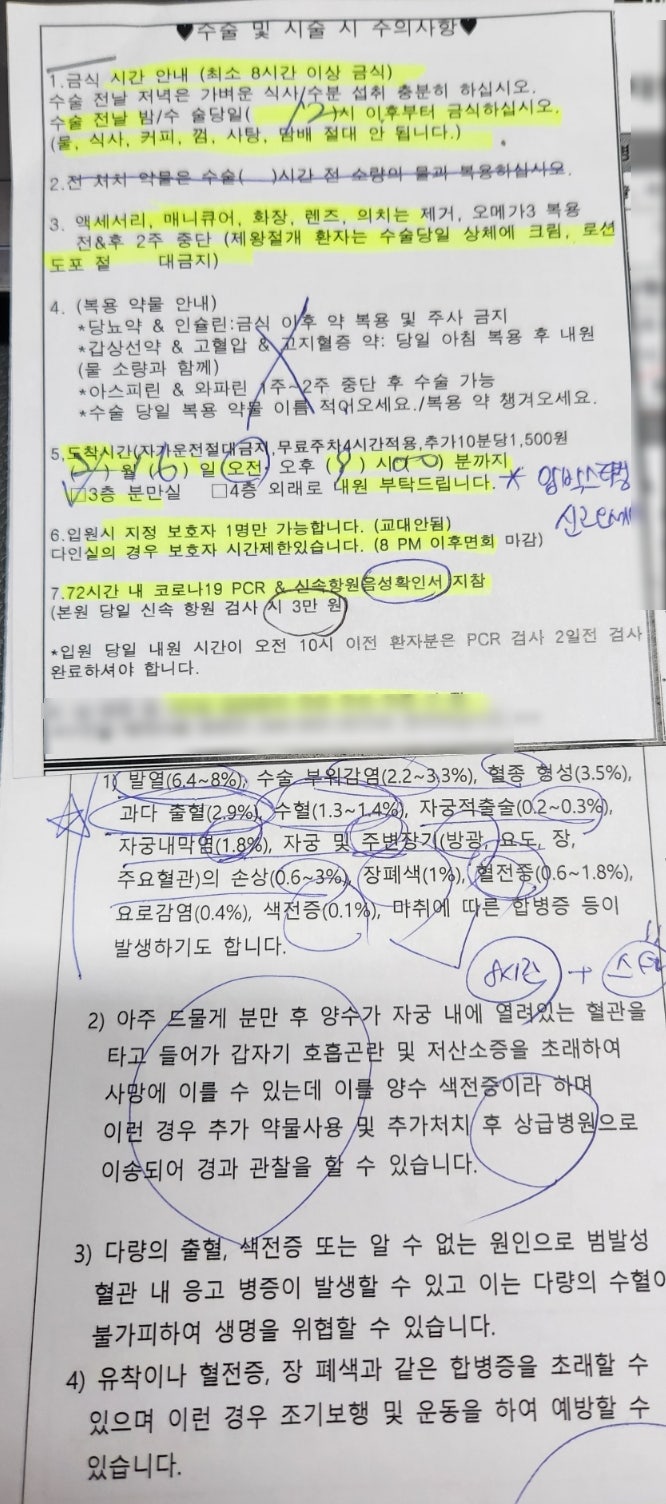 ♥수술 및 시술 시 주의사항♥
1.금식 시간 안내 (최소 8시간 이상 금식)
수술 전날 저녁은 가벼운 식사/수분 섭취 충분히 하십시오.
수술 전날 밤/수 술당일( 12 )시 이후부터 금식하십시오.
(물, 식사, 커피, 껌, 사탕, 담배 절대 안 됩니다.)
2.전 처치 약물은 수술( )시간 전 소량의 물과 복용하십시오.
3. 액세서리, 매니큐어, 화장, 렌즈, 의치는 제거, 오메가3 복용
전&후 2주 중단 (제왕절개 환자는 수술당일 상체에 크림, 로션
도포 절 대금지)
4. (복용 약물 안내)
*당뇨약 & 인슐린:금식 이후 약 복용 및 주사 금지
*갑상선약 & 고혈압 & 고지혈증 약: 당일 아침 복용 후 내원
(물 소량과 함께)
*아스피린 & 와파린 1주~2주 중단 후 수술 가능
*수술 당일 복용 약물 이름 적어오세요./복용 약 챙겨오세요.
5.도착시간(자가운전절대금지,무료주차4시간적용,추가10분당1,500원
) 월 ( 6 ) 일 (오전, 오후 ( ) 시( 00 ) 분까지
□3층 분만실 □4층 외래로 내원 부탁드립니다. *
6.입원시 지정 보호자 1명만 가능합니다. (교대안됨)
다인실의 경우 보호자 시간제한있습니다. (8 PM 이후면회 마감)
7.72시간 내 코로나19 PCR & 신속항원음성확인서 지참
(본원 당일 신속 항원 검사 시 3만 원)
*입원 당일 내원 시간이 오전 10시 이전 환자분은 PCR 검사 2일전 검사
완료하셔야 합니다.
1) 발열(6.4~8%), 수술 부위감염(2.2~3.3%), 혈종 형성(3.5%),
과다 출혈(2.9%), 수혈(1.3~1.4%), 자궁적출술(0.2~0.3%),
자궁내막염(1.8%), 자궁 및 주변장기(방광, 요도, 장,
주요혈관)의 손상(0.6~3%), 장폐색(1%), 혈전증(0.6~1.8%),
요로감염(0.4%), 색전증(0.1%), 마취에 따른 합병증 등이
발생하기도 합니다.
8시간 +
2) 아주 드물게 분만 후 양수가 자궁 내에 열려있는 혈관을
타고 들어가 갑자기 호흡곤란 및 저산소증을 초래하여
사망에 이를 수 있는데 이를 양수 색전증이라 하며
이런 경우 추가 약물사용 및 추가처치 후 상급병원으로
이송되어 경과 관찰을 할 수 있습니다.
3) 다량의 출혈, 색전증 또는 알 수 없는 원인으로 범발성
혈관 내 응고 병증이 발생할 수 있고 이는 다량의 수혈이
불가피하여 생명을 위협할 수 있습니다.
4) 유착이나 혈전증, 장 폐색과 같은 합병증을 초래할 수
있으며 이런 경우 조기보행 및 운동을 하여 예방할 수
있습니다.